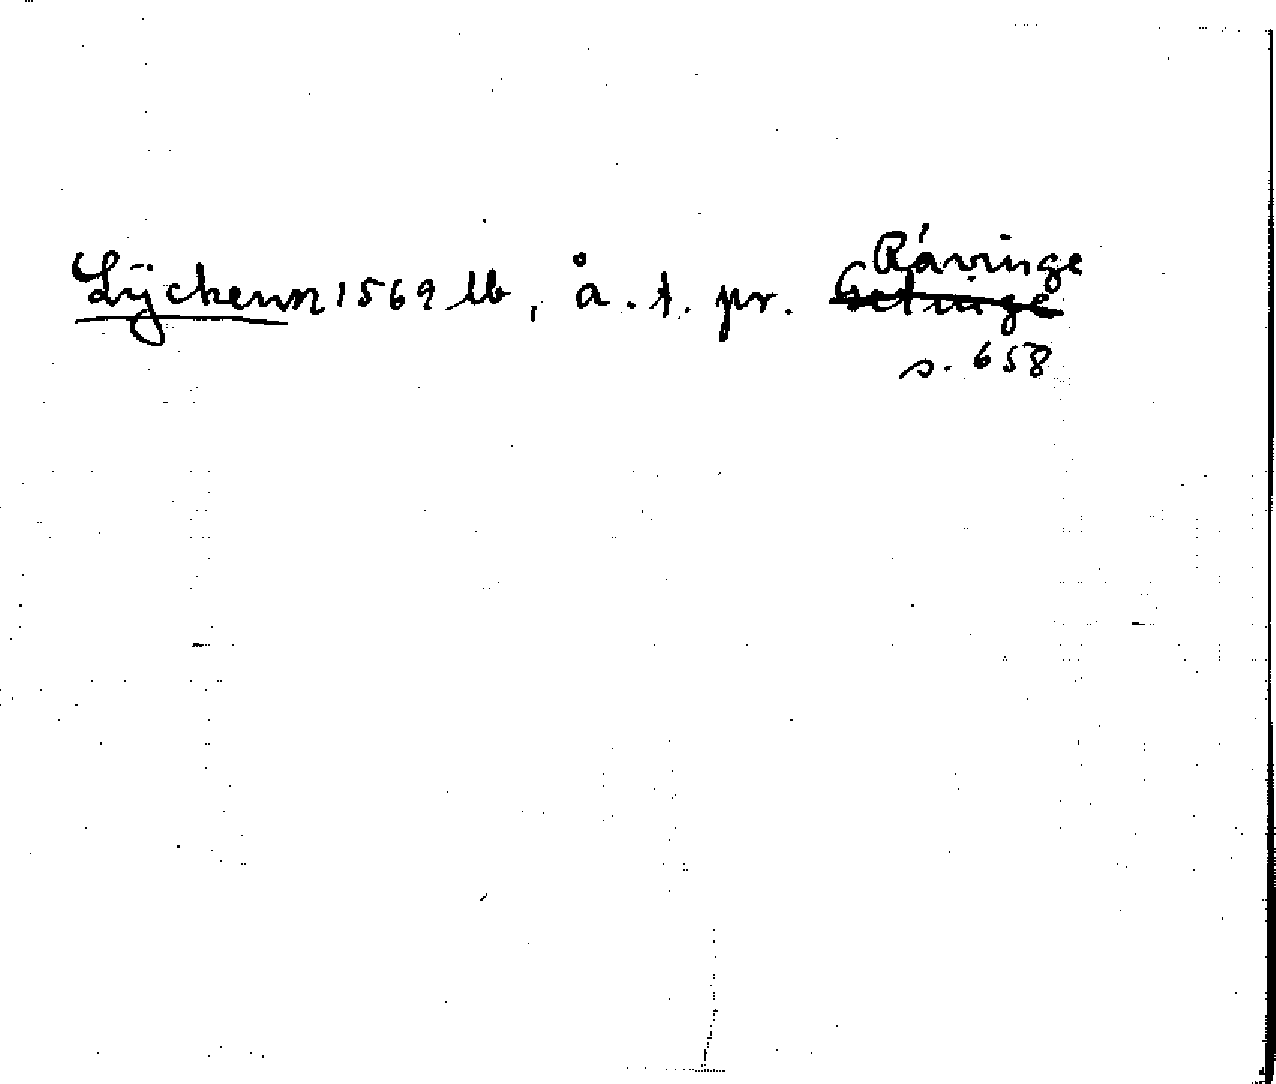 Rávinge
Lÿckenn 1569 lb, å. t. pr. Getinge
s. 658